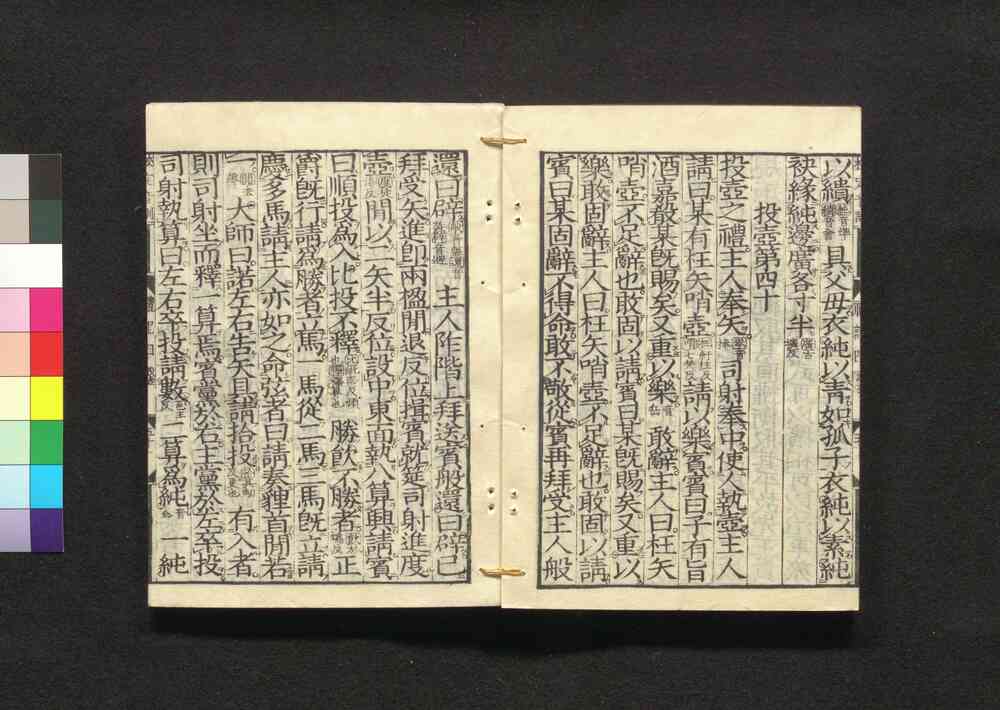 以繢具父母衣純以青如孤子衣純以素純
袂緣純邊廣各寸半
投壺第四十
投壺之禮主人奉矢司射奉中使人執壺主人
請曰某有枉矢哨壺請以樂賓賓曰子有旨
酒嘉殽某既賜矣又重以樂敢辭主人曰枉矢
哨壺不足辭也敢固以請賓曰某既賜矣又重以
樂敢固辭主人曰枉矢哨壺不足辭也敢固以請
賓曰某固辭不得命敢不敬從賓再拜受主人般
還曰辟主人阼階上拜送賓般還曰辟已
拜受矢進卽兩楹閒退反位揖賓就筵司射進度
壺閒以二矢半反位設中東面執八算興請賓
曰順投爲入比投不釋勝飮不勝者正
爵既行請爲勝者立馬一馬從二馬三馬既立請
慶多馬請主人亦如之命弦者曰請奏貍首閒若
一大師曰諾左右告矢具請拾投有入者
則司射坐而釋一算焉賓黨於右主黨於左卒投
司射執算曰左右卒投請數二算爲純一純